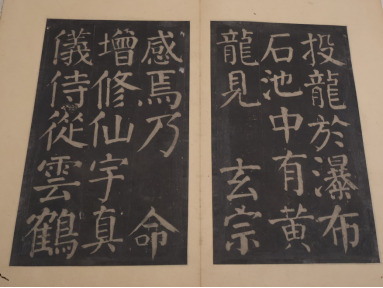 投龍於瀑布
石池中有黄
龍見 玄宗
感焉乃 命
增修仙宇真
儀侍從雲鶴